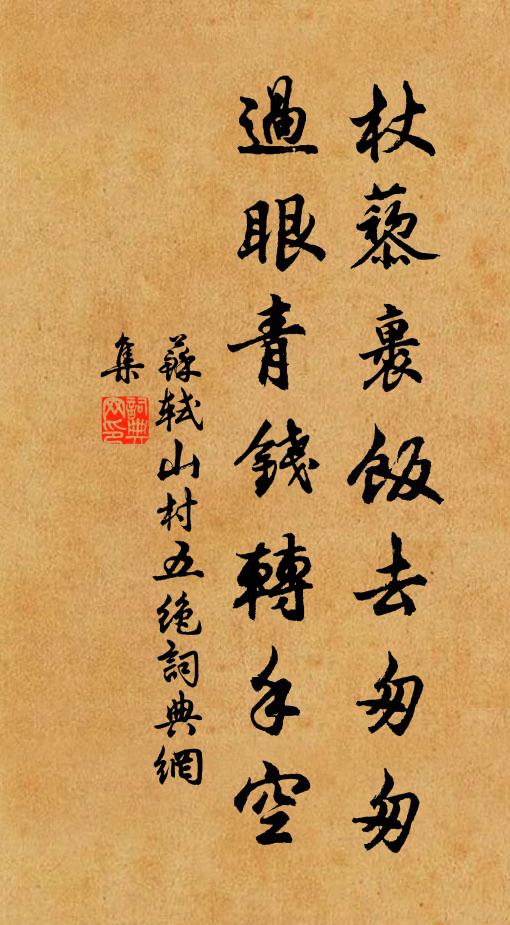 杖藜裹飯去匆匆
過眼青錢轉手空
蘇軾山村五絕詞典網
集
詞典
网印